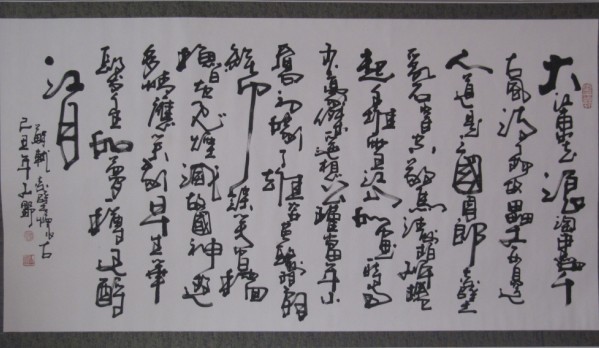 大江東去浪淘盡千
古風流人物故壘西邊
人道是三國周郎赤壁
亂石驚濤岸捲
起千堆雪江山如畫一時多
少豪傑遙想公瑾當年小
喬初嫁了雄姿英發羽扇
綸巾談笑間檣
櫓灰飛煙滅故國神遊
多情應笑我早生華
髮人生如夢一樽還酹
江月
蘇軾赤壁懷古
己丑年